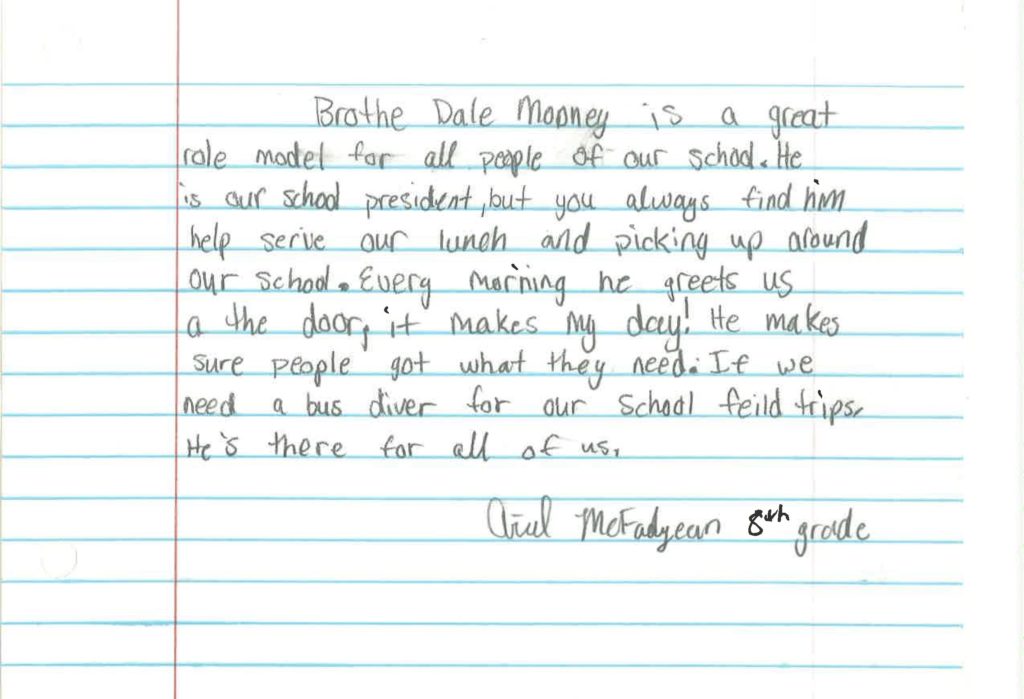 Brothe Dale Mooney is a great
role model for all people of our school. He
is our school president, but you always find him
help serive our lunch and picking up around
our school. Every morning he greets us
a the door, it makes my day! He makes
sure people got what they need. If we
need a bus diver for our school feild trips,
He's there for all of us.
McFadyean 8th grade